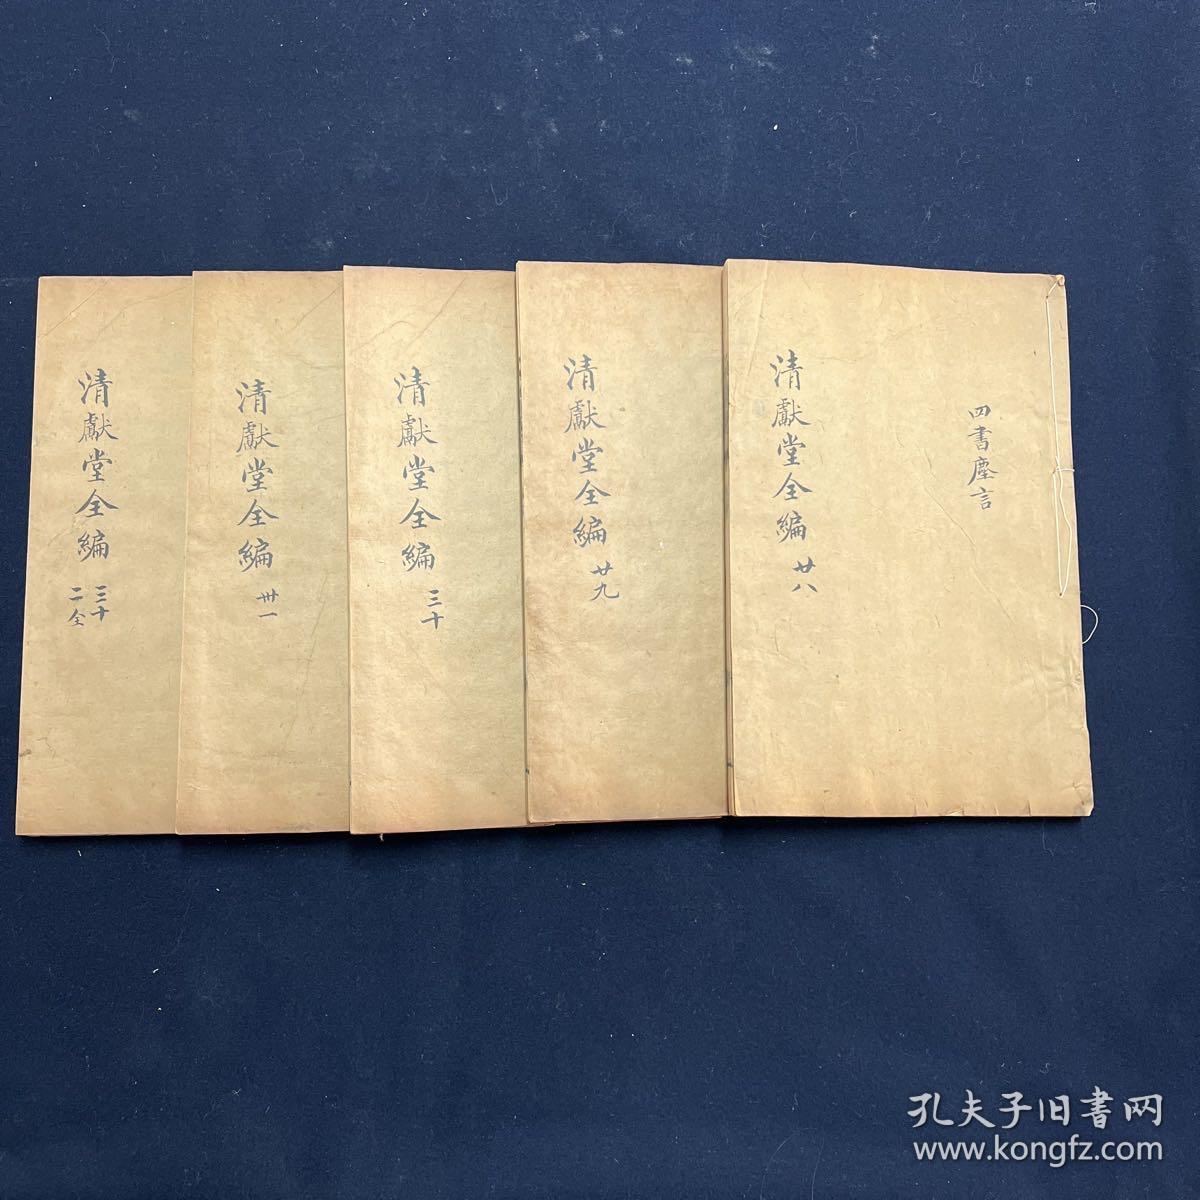 四書塵言
清獻堂全編 廿八
清獻堂全編 廿九
清獻堂全編 三十
清獻堂全編 卅一
清獻堂全編 三十
二全
孔夫子旧書网
www.kongfz.com